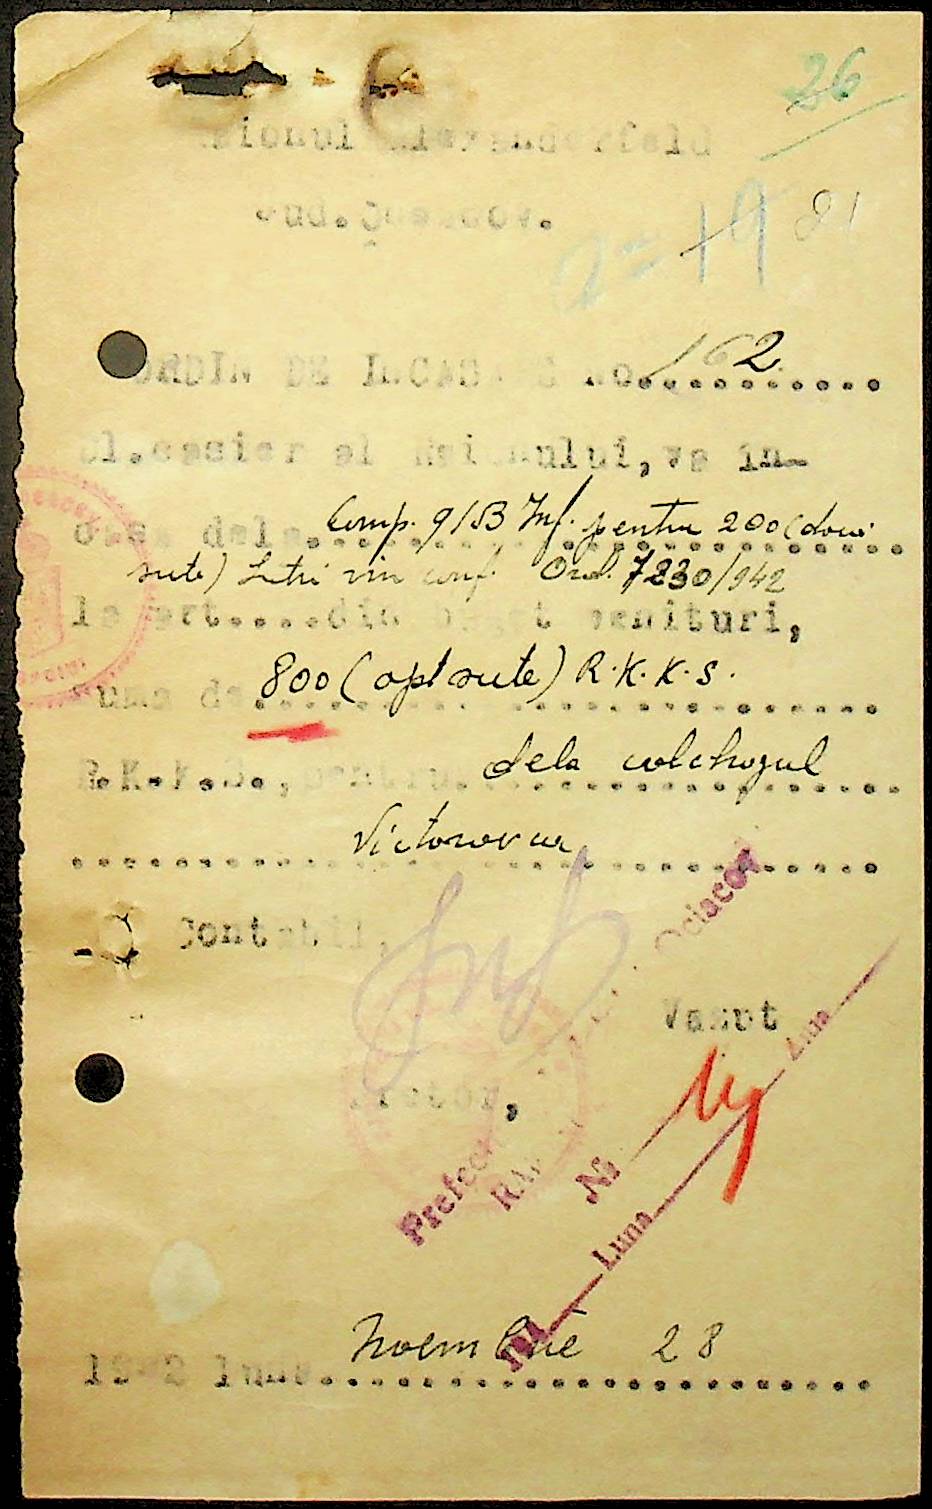 26
Raionul Alexanderfeld
Jud. Oceacov.
19 21
ORDIN DE INCASARE No. 162
Dl. casier al Raionului, va in-
casa dela Comp. 9/B Inf. pentru 200 (două
sute) Litri vin conf. Ord. 7230/942
la art....din buget venituri,
suma de 800 (opt sute) R.K.K.S.
R.K.K.S., pentru dela colchozul
Victorovca
Contabil,
Vazut
Pretor,
Ociacov
Prefec
No
Luna
1942 luna Noembrie 28